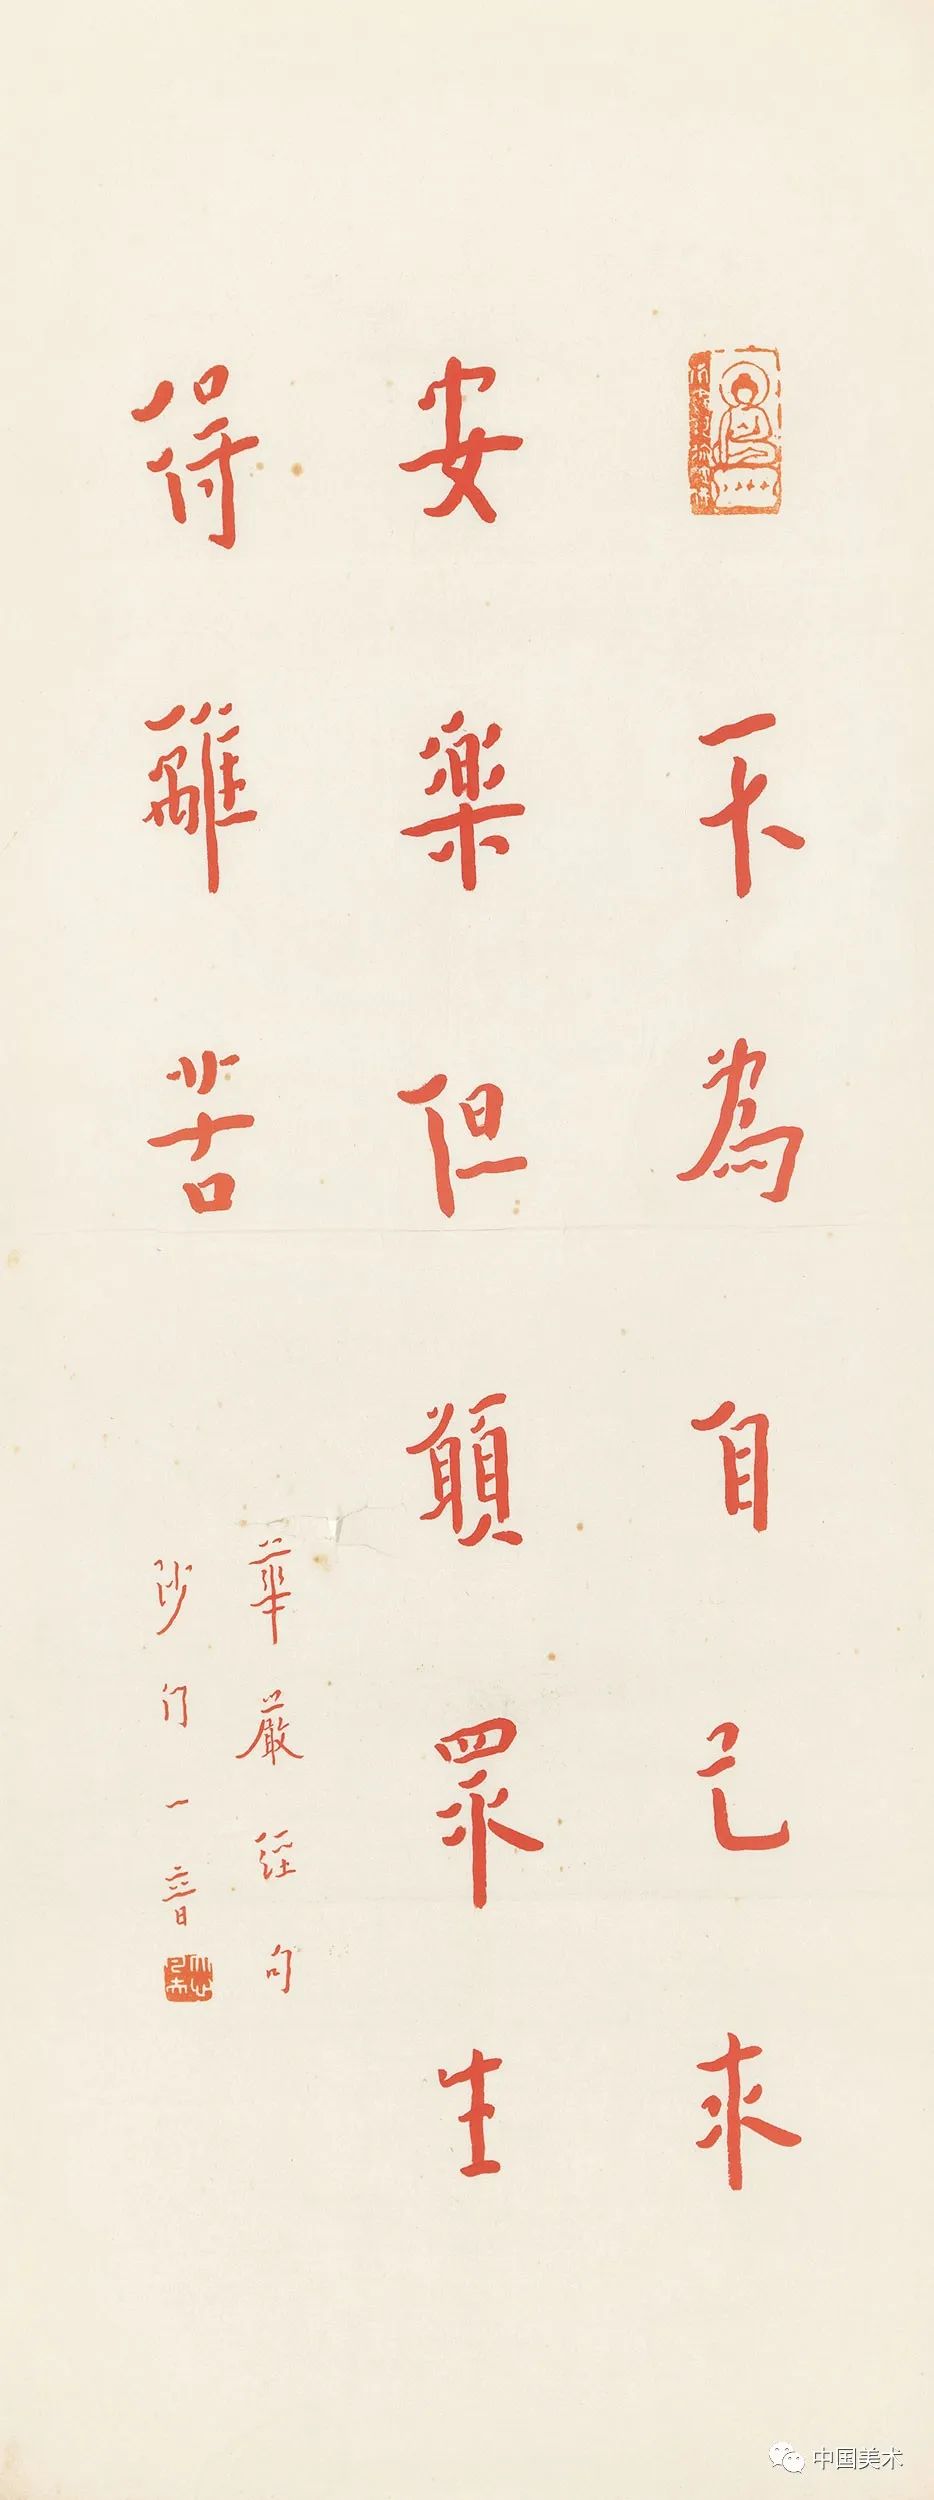 不為自己求
安樂但願眾生
得離苦
華嚴經句
沙门一音
中国美术